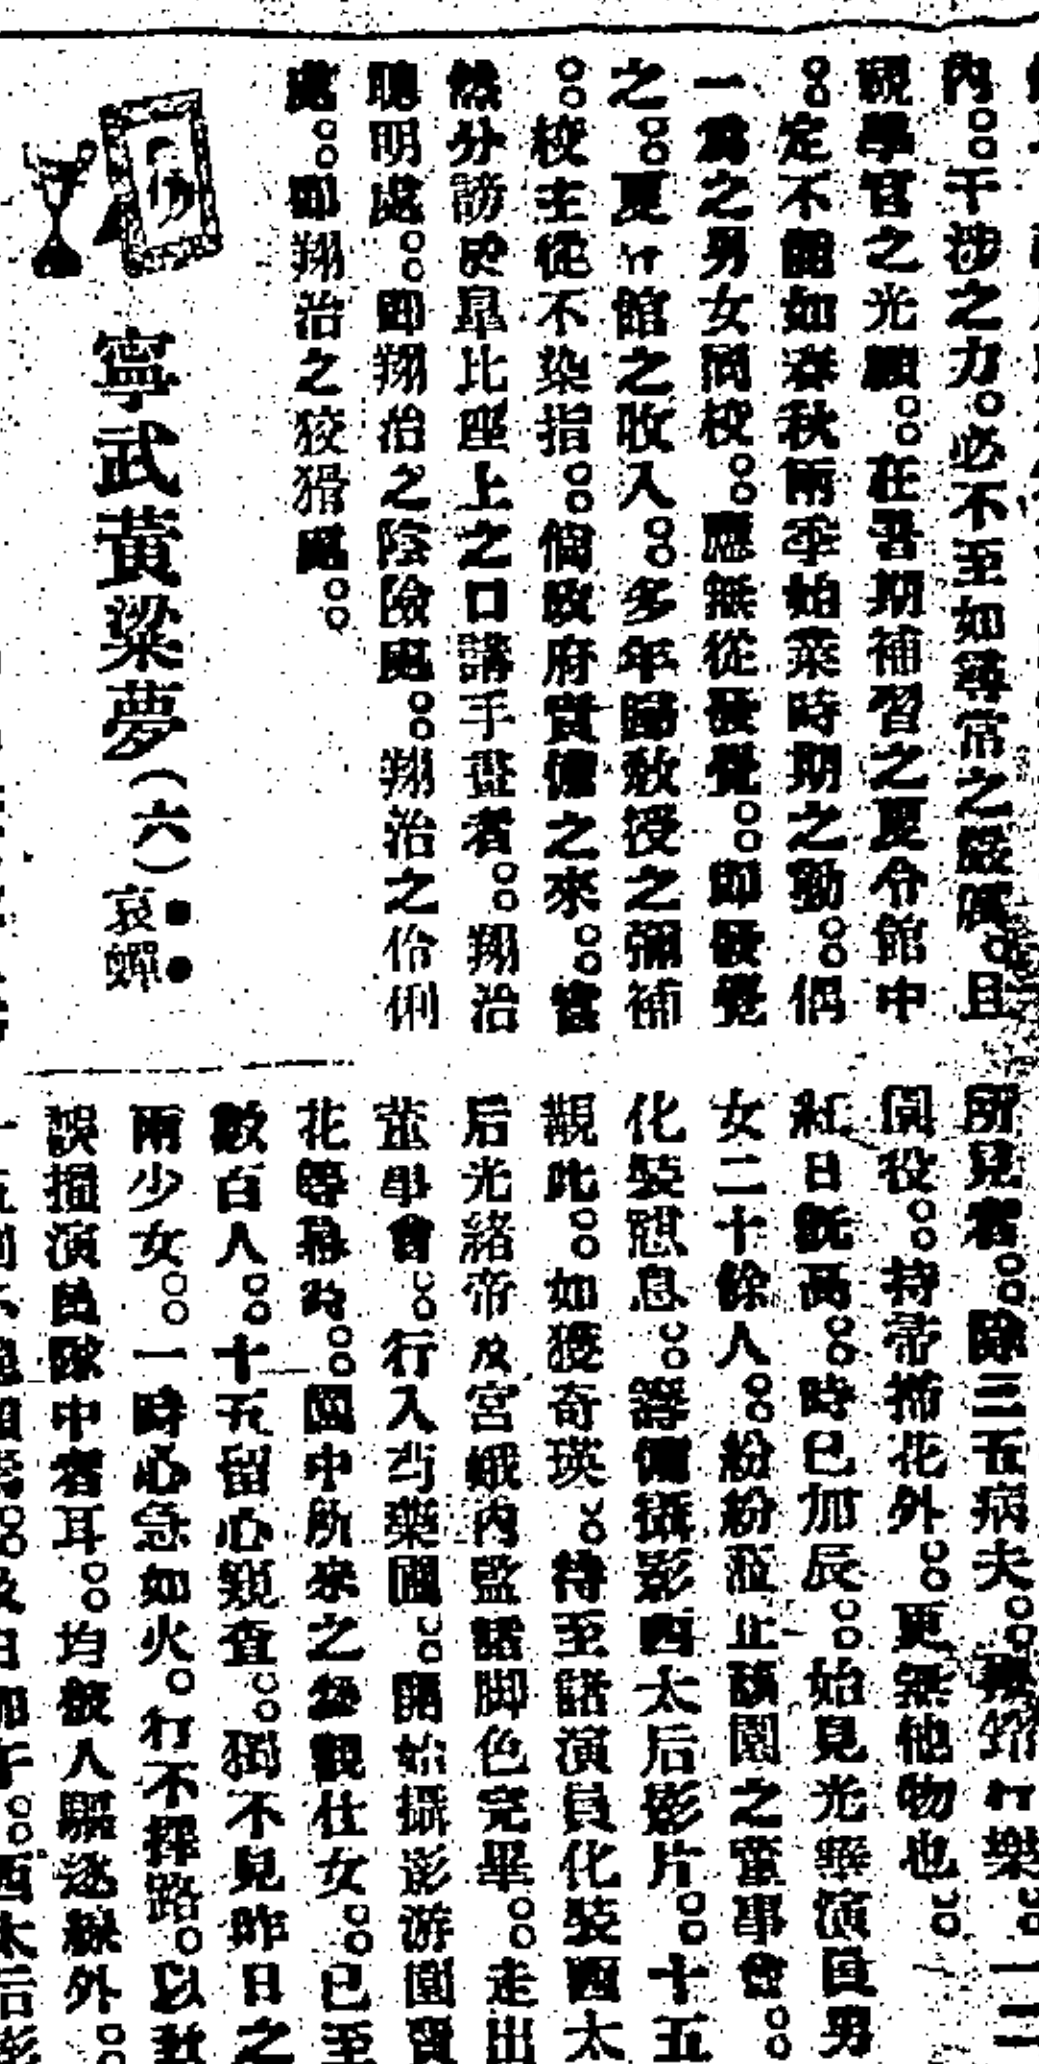 內。。干涉之力。必不至如尋常之嚴厲。且
視學官之光顧。。在暑期補習之夏令館中
。。定不能如春秋兩季始業時期之勤。。倘
一為之男女同校。。應無從發覺。。即發覺
之。。夏令館之收入。。多年歸教授之彌補
。。校主從不染指。。倘政府責備之來。。當
然分謗於皐比座上之口講手畫者。。翔治
聰明處。。即翔治之陰險處。。翔治之伶俐
處。。即翔治之狡猾處。。
寧武黃粱夢（六）哀蟬
所見者。。除三五病夫。。
園役。。持帚掃花外。。更無他物也。。
紅日既高。。時已加辰。。始見光華演員男
女二十餘人。。紛紛蒞止該園之董事會。。
化裝憩息。。籌備攝影西太后影片。。十五
覩此。。如獲奇瑛。。待至諸演員化裝西太
后光緒帝及宮娥內監諸脚色完畢。。走出
董事會。。行入芍藥圃。。開始攝影游園賞
花等幕時。。園中所來之參觀仕女。。已至
數百人。。十五留心窺查。。獨不見昨日之
兩少女。。一時心急如火。行不擇路。以致
誤撞演員隊中者耳。。均被人驅逐線外。。